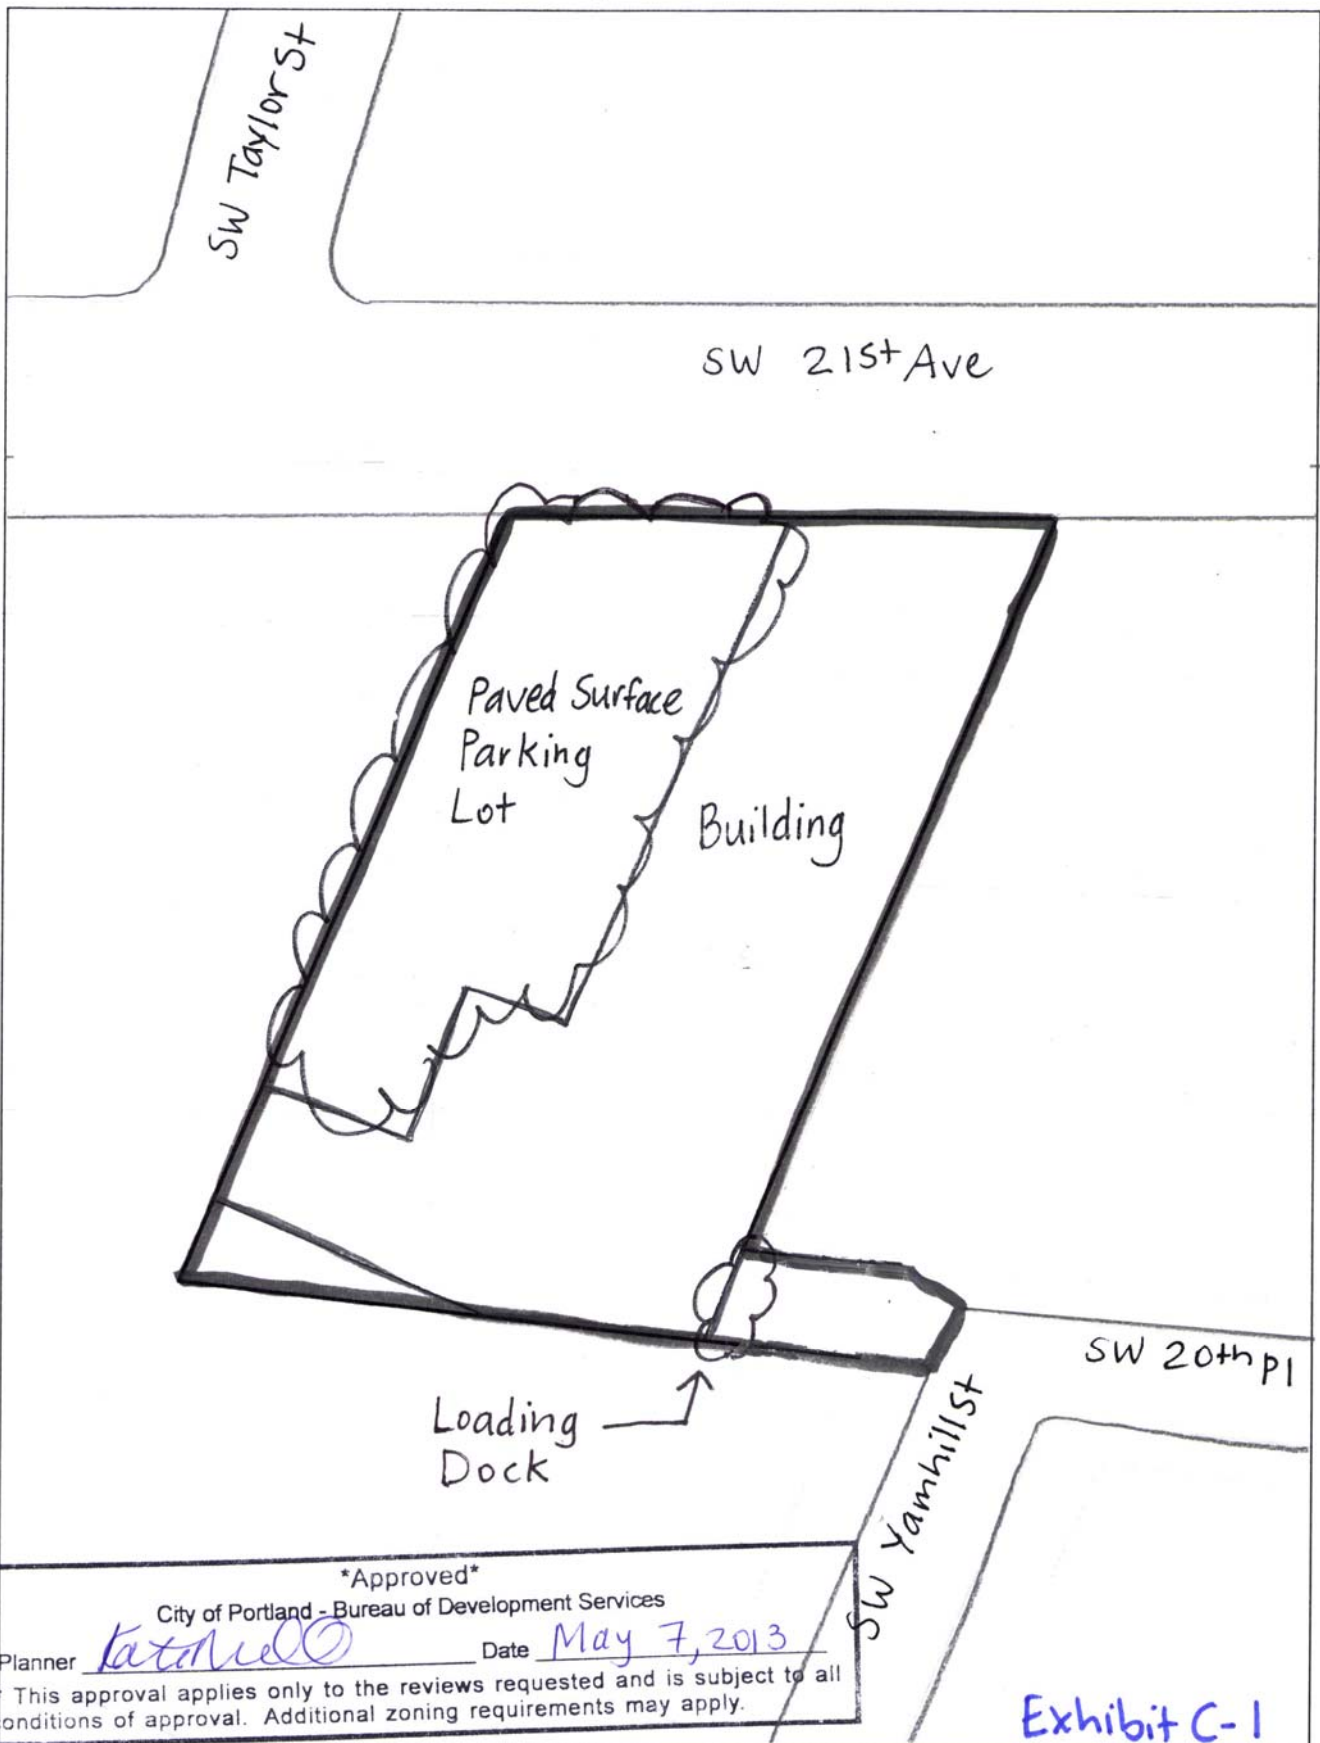 SW Taylor St
SW 21st Ave
Paved Surface
Parking
Lot
Building
SW 20th Pl
Loading
Dock
SW Yamhill St
*Approved*
City of Portland - Bureau of Development Services
Planner
Date May 7, 2013
* This approval applies only to the reviews requested and is subject to all
onditions of approval. Additional zoning requirements may apply.
Exhibit C-1